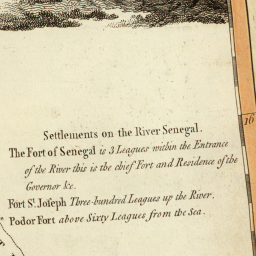 Settlements on the River Senegal.
The Fort of Senegal is 3 Leagues within the Entrance
of the River this is the chief Fort and Residence of the
Governor &c.
Fort St. Joseph Three-hundred Leagues up the River.
Podor Fort above Sixty Leagues from the Sea.
16